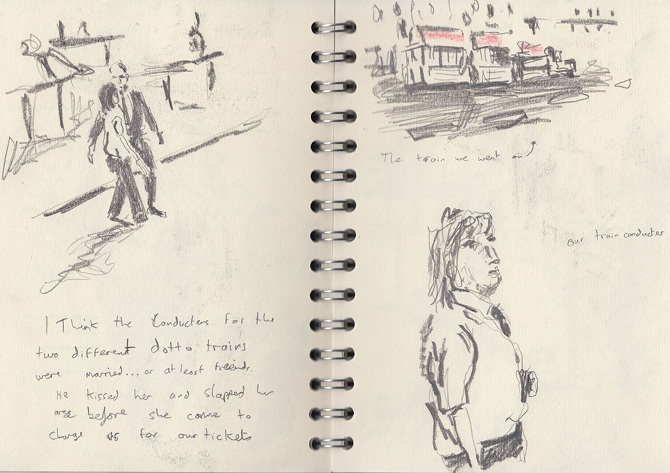 I Think the Conductors for the
two different dotto trains
were married... or at least friends.
He kissed her and slapped her
arse before she came to
charge us for our tickets
The train we went on
our train conductor